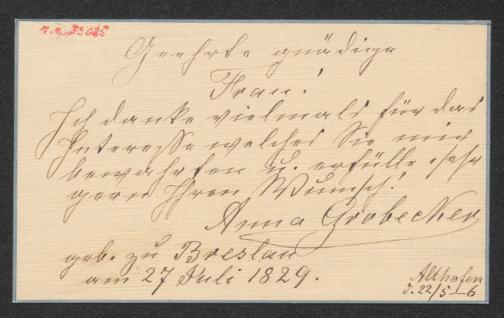 Geehrte gnädige
Frau!
Ich danke vielmals für das
Interesse welches Sie mir
bewahrten u. erfülle sehr
gern Ihren Wunsch!
Anna Grobecker
geb. zu Breslau
am 27 Juli 1829.
Althofen
d. 22/5 – 6